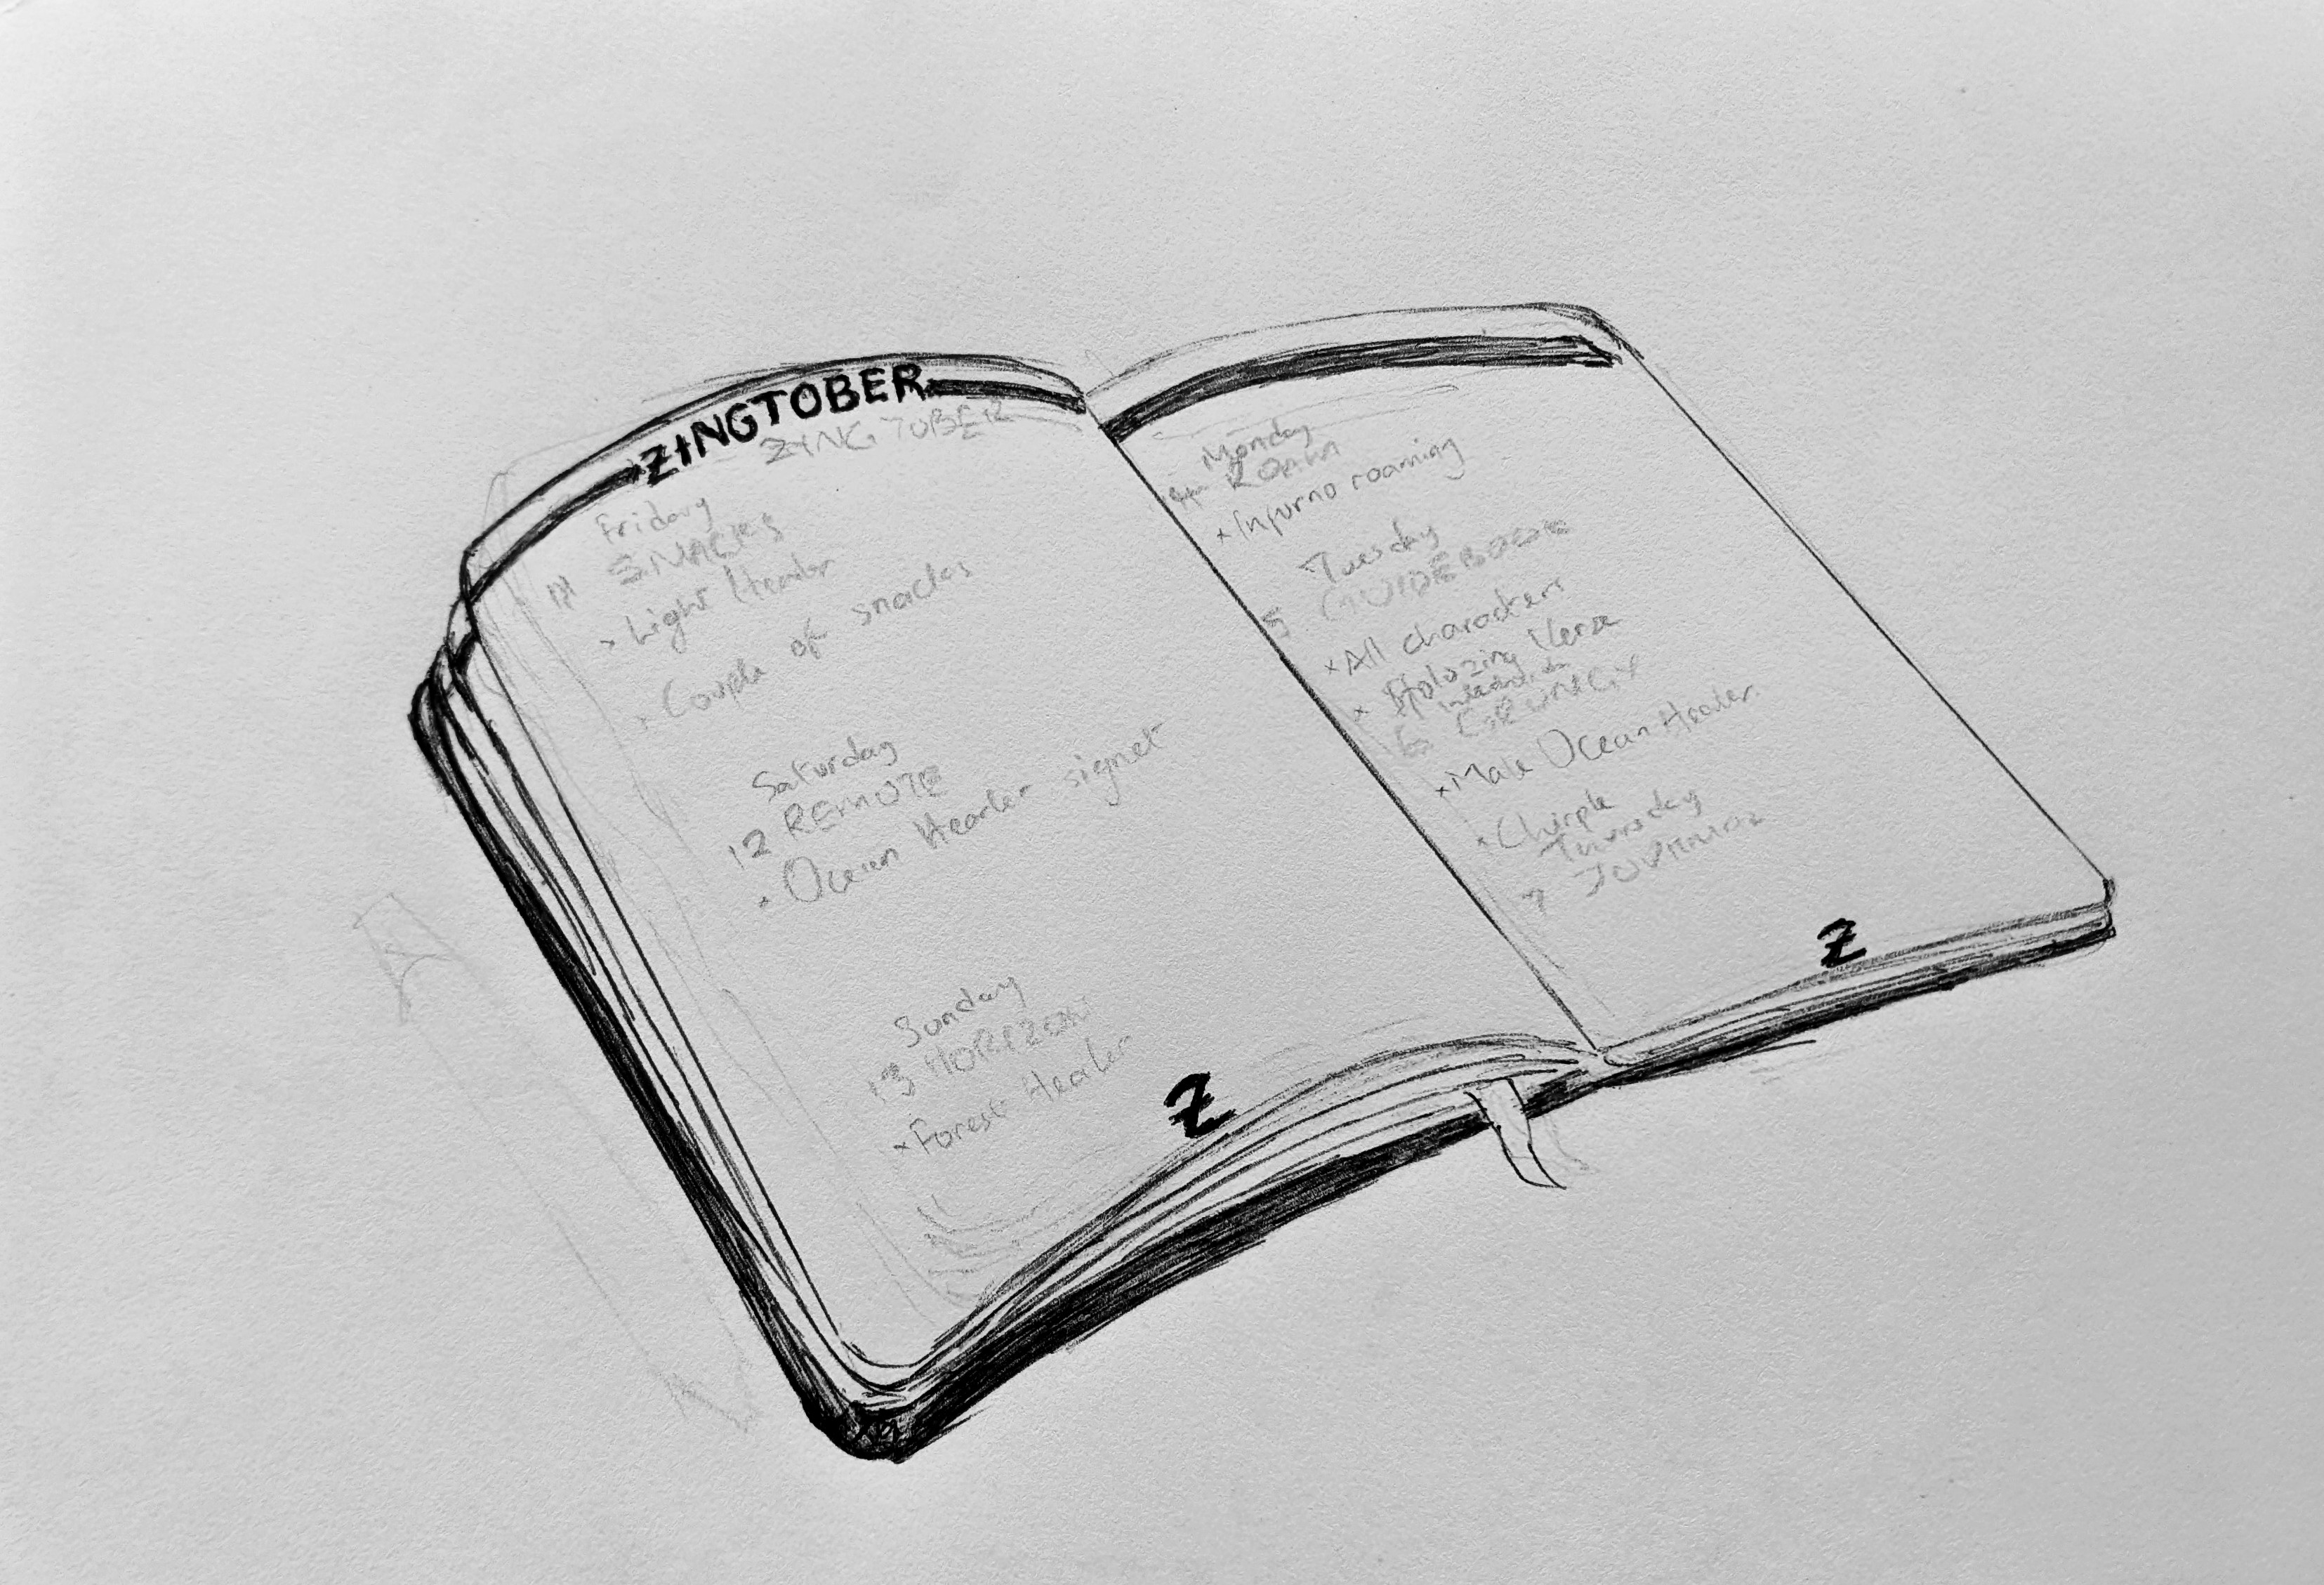 ZINGTOBER
ZINGTOBER
Friday
11 SNACKS
× Light Header
× Couple of snacks
Saturday
12 REMOTE
× Ocean Header signet
Sunday
13 HORIZON
× Forest Header
Z
Monday
4 ROAM
× Infurno roaming
Tuesday
5 GUIDEBOOK
× All characters
× Holozing Verse
6 GRUNGY
× Male Ocean Header
× Chirple
Thursday
7 JOURNAL
Z